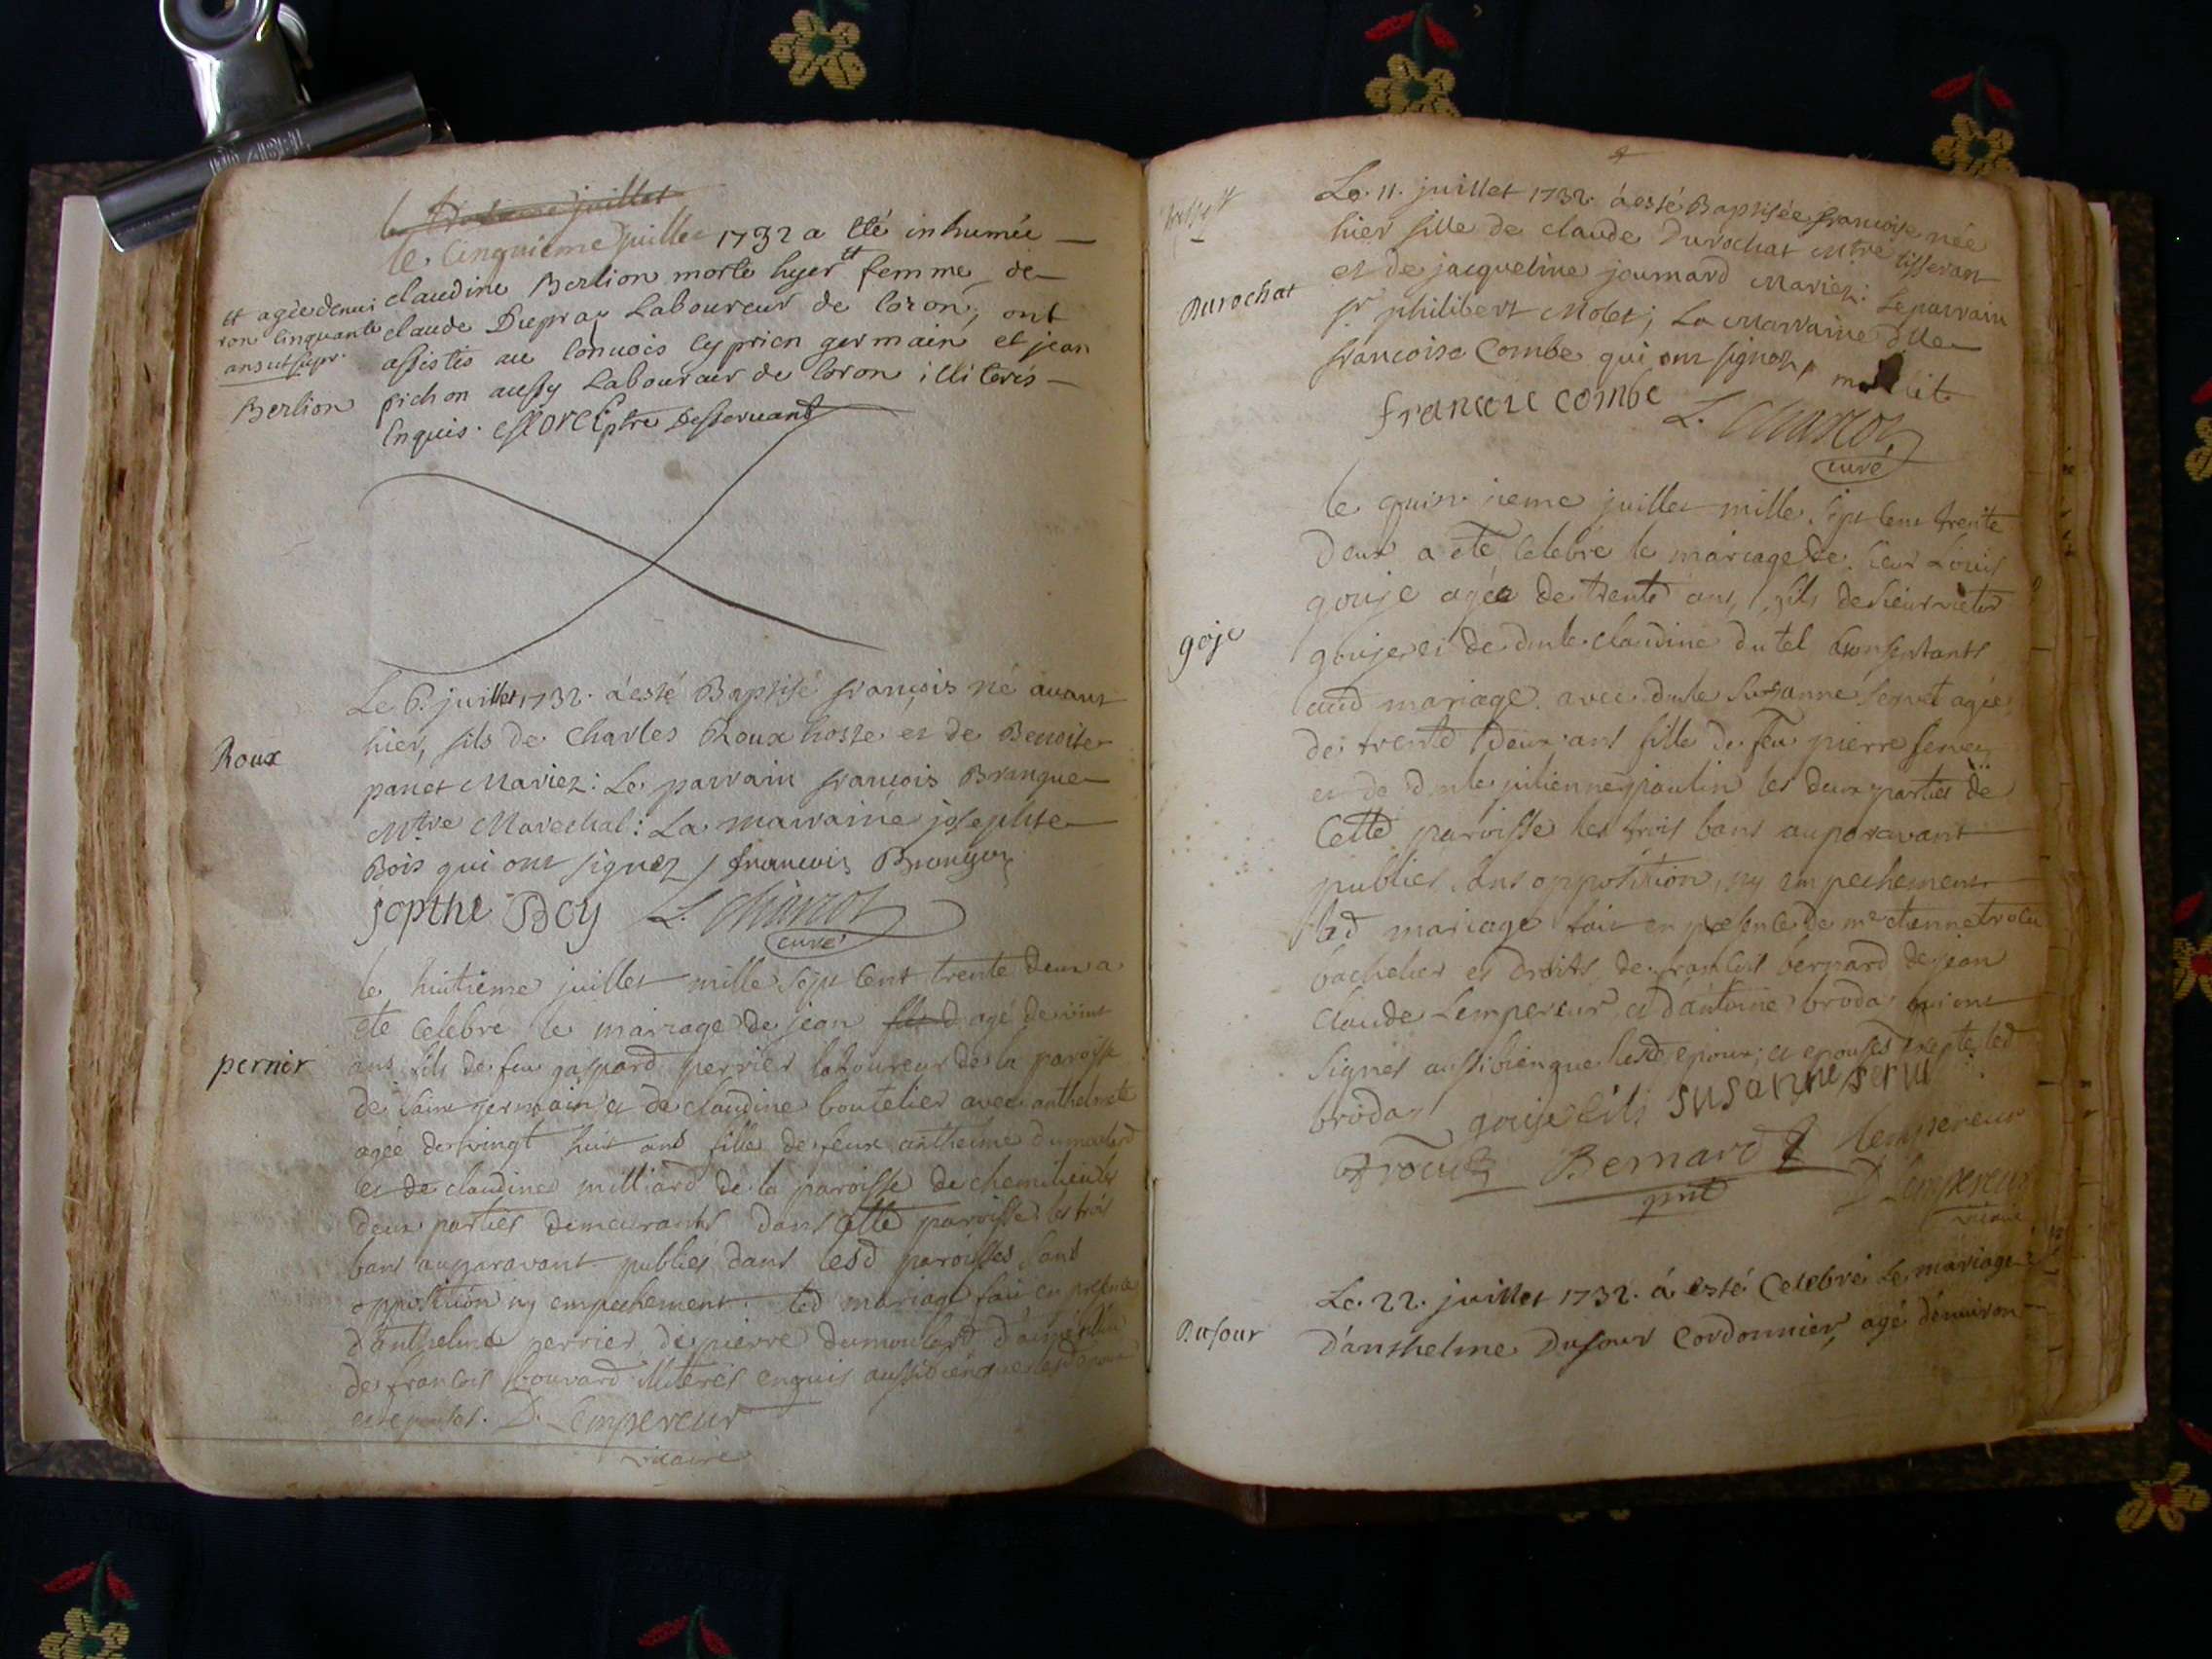 le
le Cinquieme juillet 1732 a été inhumée
claudine Berlion morte hyer tt femme de
claude Dupras Laboureur de loron, ont
assistés au convois cyprien germain et jean
pichon aussy Laboureur de loron illiterés
Enquis. ptre Desservant
tt agée denvi
ron cinquante
ans ut supr.
Berlion
Roux
Le 6. juillet 1732. à esté Baptisé françois né avant
hier, fils de Charles Roux hoste et de Benoite
panet Mariez: Le parrain françois Brangue
Mtre Marechal: La marraine josephte
Bois qui ont signez francois
jopthe Boy L. Charcot
curé
pernier
le huitieme juillet mille sept cent trente deux a
eté celebré le mariage de jean agé de vint
ans fils de feu gaspard perrier laboureur de la paroisse
de saint germain et de claudine boutelier avec anthelmete
agée de vingt huit ans fille de feux anthelme dumoulard
et de claudine milliard de la paroisse de chemilieu les
deux parties demeurants dans cette paroisse les trois
bans auparavant publiés dans lesd paroisses sans
opposition ny empechement. led mariage fait en presence
d'anthelme perrier de pierre dumoulard
de francois bouvard illiterés enquis aussi bien que
et epouses. D. Lempereur
vicaire
Le. 11. juillet 1732. à esté Baptisée françoise née
hier fille de claude Durochat Mtre tisseran
et de jacqueline joumard Mariez: Le parrain
sr philibert Molet; La Marraine dlle
francoise Combe qui ont signez,
francoise combe L. Charcot
curé
Durochat
le quinzieme juillet mille sept cent trente
Deux a eté celebré le mariage de sieur Louis
gouje agée de trente ans, fils de sieur
gouje et de dmle claudine du tel consentants
aud mariage avec dmle susanne servet agée
de trente deux ans fille de feu pierre servet
et de dmle julienne poulin les deux parties de
Cette paroisse les trois bans auparavant
publiés sans opposition, ny empechement
led mariage fait en presence de mre etienne
bachelier es droits, de francois bernard de jean
claude Lempereur et d'antoine broda qui ont
signés aussi bien que lesd epoux et epouses excepté led
broda gouje fils susanne servet
goje
Bernard Lempereur
D Lempereur
vicaire
Le. 22. juillet 1732. à esté Celebré Le mariage
d'anthelme Dufour Cordonnier, agé d'environ
Dufour